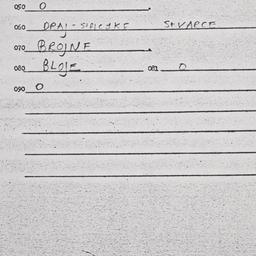 050 O
060 STVARCE
070 BROJNE
080 BLOJE 081 O
090 O